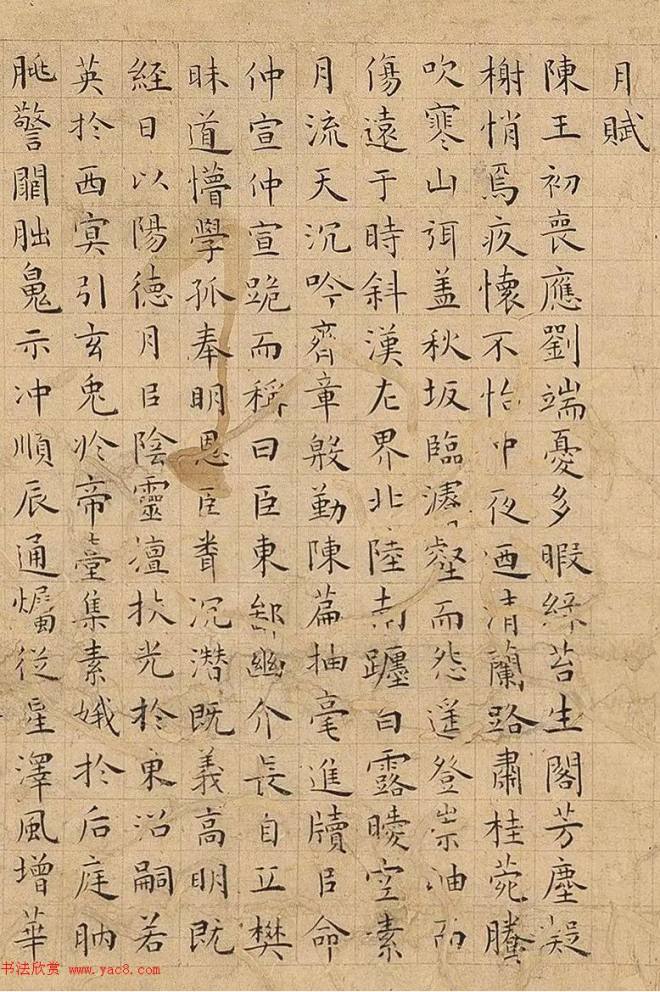 月賦
陳王初喪應劉端憂多暇綠苔生閣芳塵凝
榭悄焉疚懷不怡中夜迺清蘭路肅桂菀騰
吹寒山弭盖秋坂臨濬壑而怨遥登崇岫而
傷遠于時斜漢左界北陸南躔白露曖空素
月流天沉吟齊章殷勤陳篇抽毫進牘以命
仲宣仲宣跪而稱曰臣東鄙幽介長自丘樊
昧道懵學孤奉明恩臣聞沉潛既義高明既
經日以陽德月以陰靈擅扶光於東沼嗣若
英於西冥引玄兔於帝臺集素娥於后庭朒
朓警闕朏魄示冲順辰通爥從星澤風增華
书法欣赏 www.yac8.com